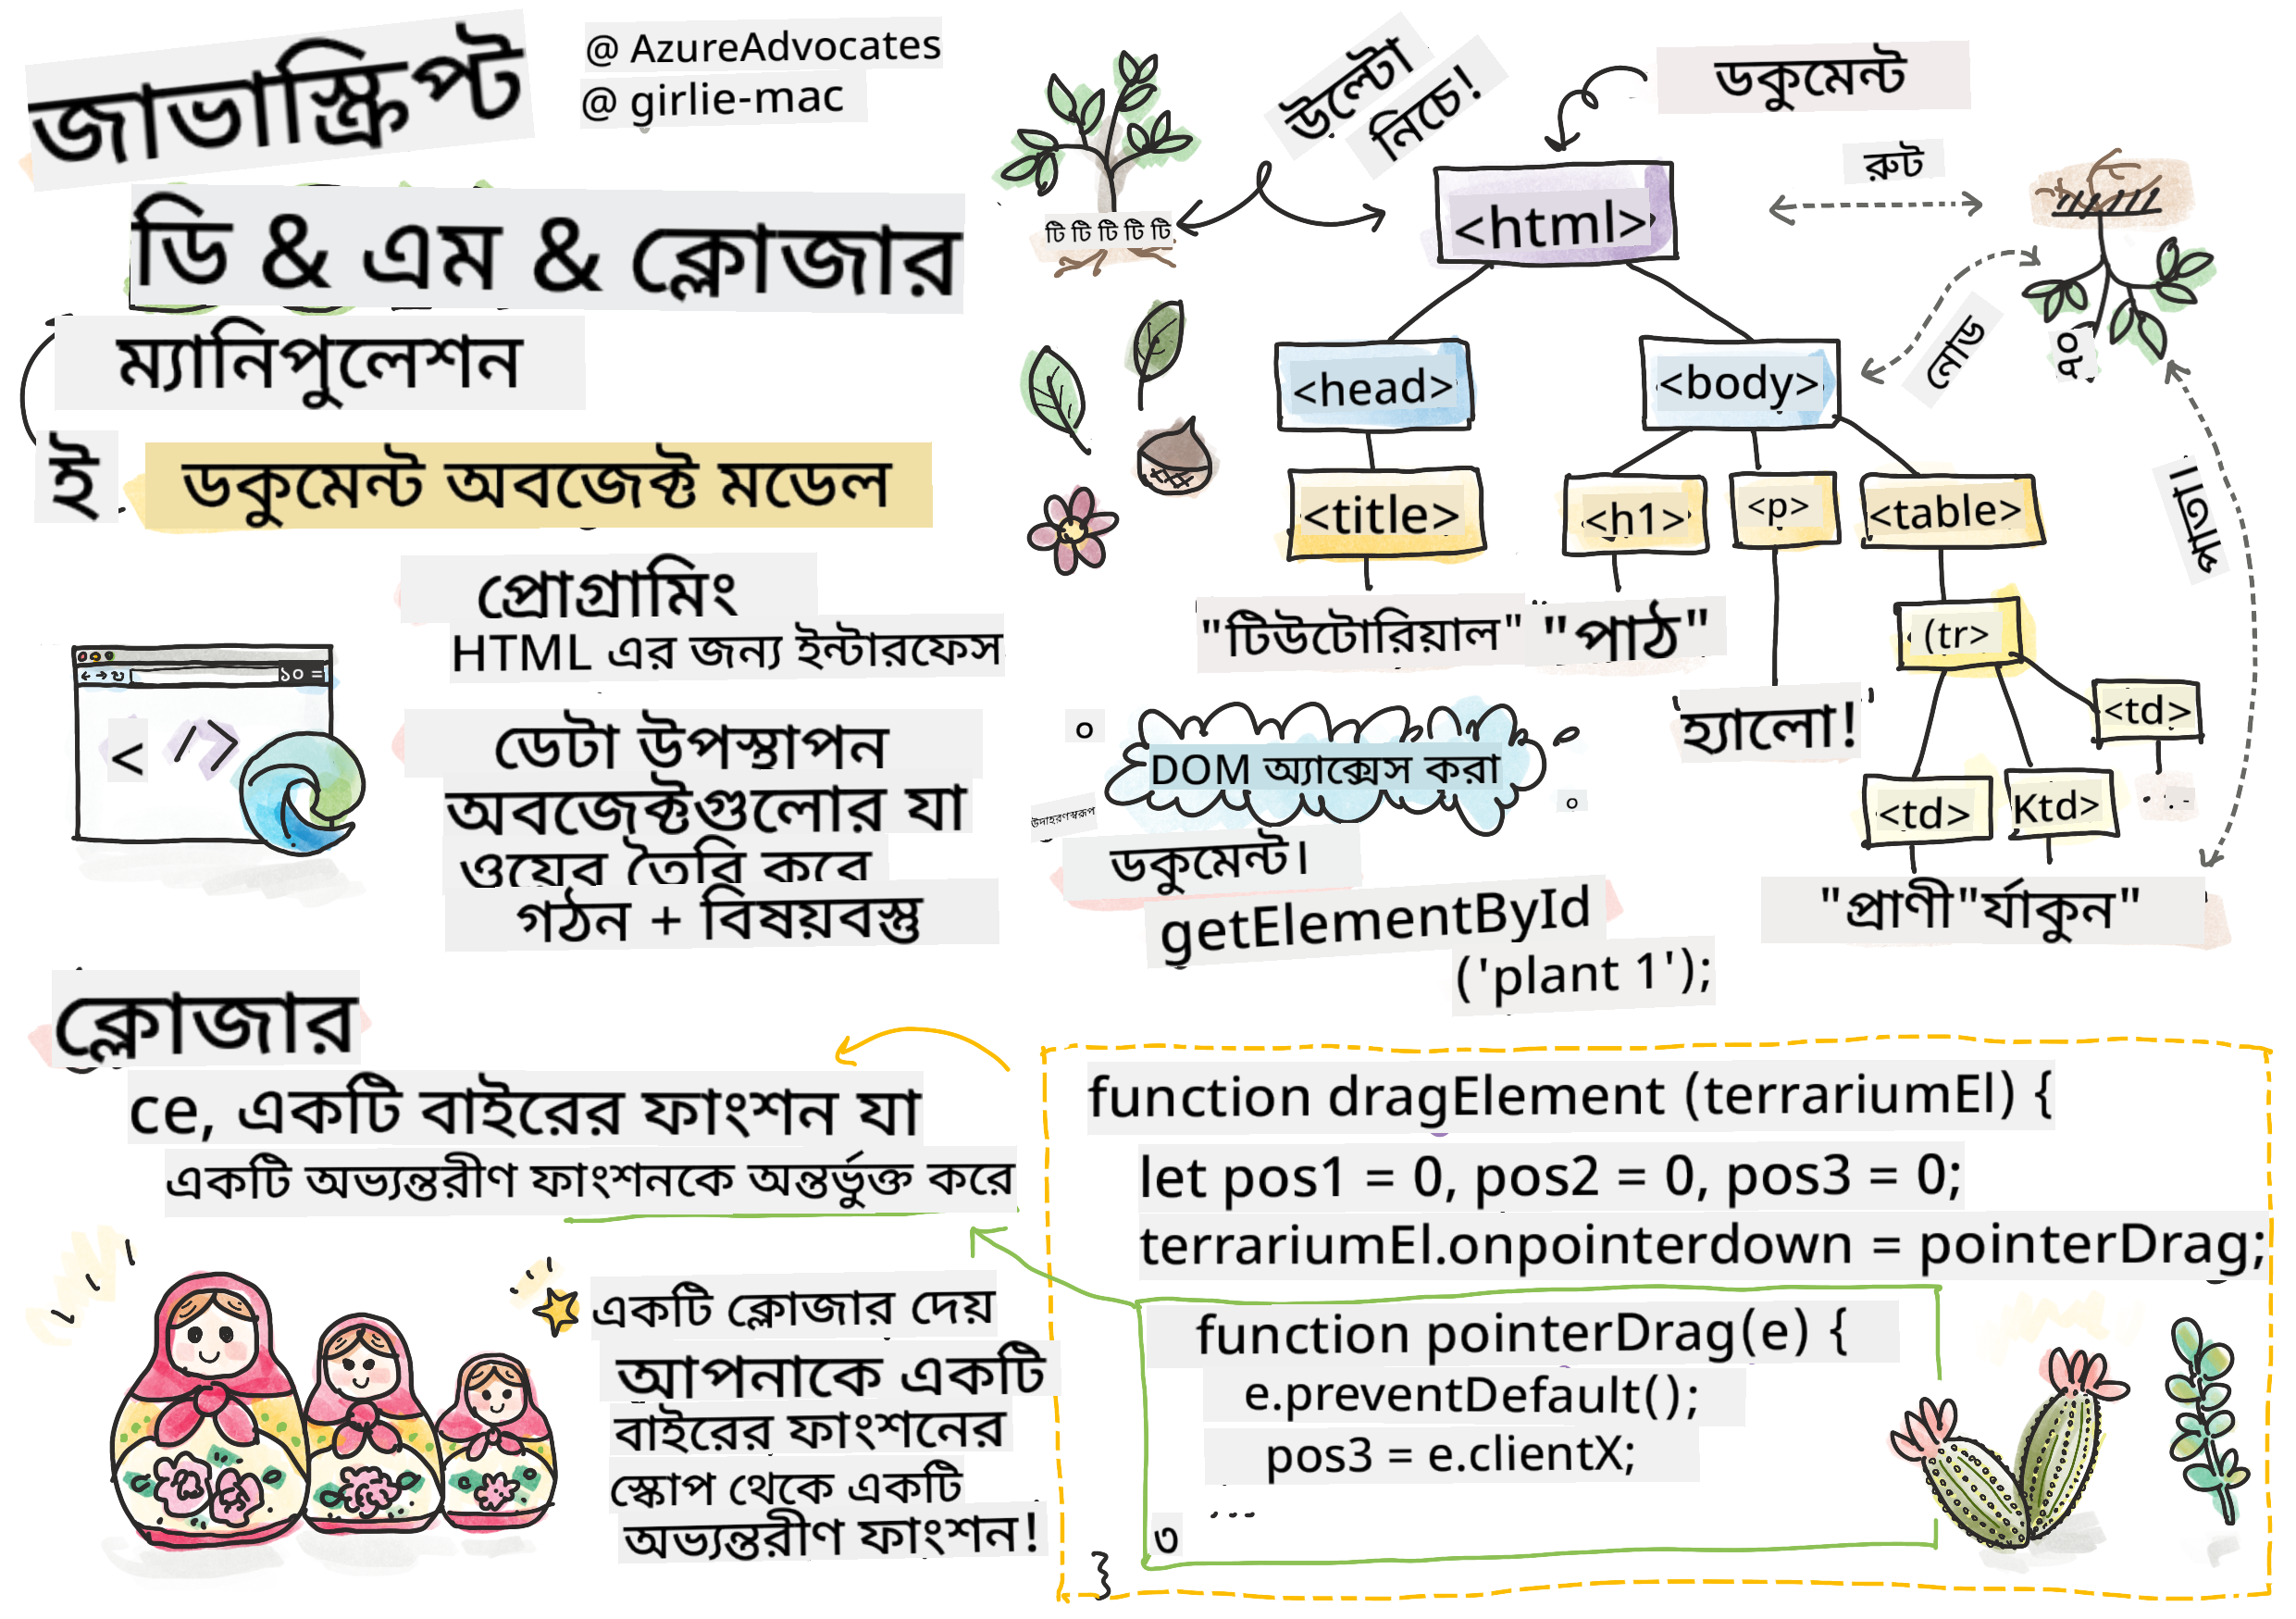 জাভাস্ক্রিপ্ট
@ AzureAdvocates
@ girlie-mac
ডি & এম & ক্লোজার
ম্যানিপুলেশন
ই ডকুমেন্ট অবজেক্ট মডেল
প্রোগ্রামিং
HTML এর জন্য ইন্টারফেস
ডেটা উপস্থাপন
অবজেক্টগুলোর যা
ওয়েব তৈরি করে
গঠন + বিষয়বস্তু
১০ =
< />
টি টি টি টি টি
উল্টো
নিচে!
ডকুমেন্ট
রুট
<html>
নোড
<head>
<body>
পাতা।
<title>
<h1>
<p>
<table>
"টিউটোরিয়াল"
"পাঠ"
(tr>
হ্যালো!
<td>
<td>
Ktd>
"প্রাণী"র্যাকুন"
DOM অ্যাক্সেস করা
উদাহরণস্বরূপ
ডকুমেন্ট।
getElementById
('plant 1');
ক্লোজার
ce, একটি বাইরের ফাংশন যা
একটি অভ্যন্তরীণ ফাংশনকে অন্তর্ভুক্ত করে
একটি ক্লোজার দেয়
আপনাকে একটি
বাইরের ফাংশনের
স্কোপ থেকে একটি
অভ্যন্তরীণ ফাংশন!
function dragElement (terrariumEl) {
let pos1 = 0, pos2 = 0, pos3 = 0;
terrariumEl.onpointerdown = pointerDrag;
function pointerDrag(e) {
e.preventDefault();
pos3 = e.clientX;
...
৩
}